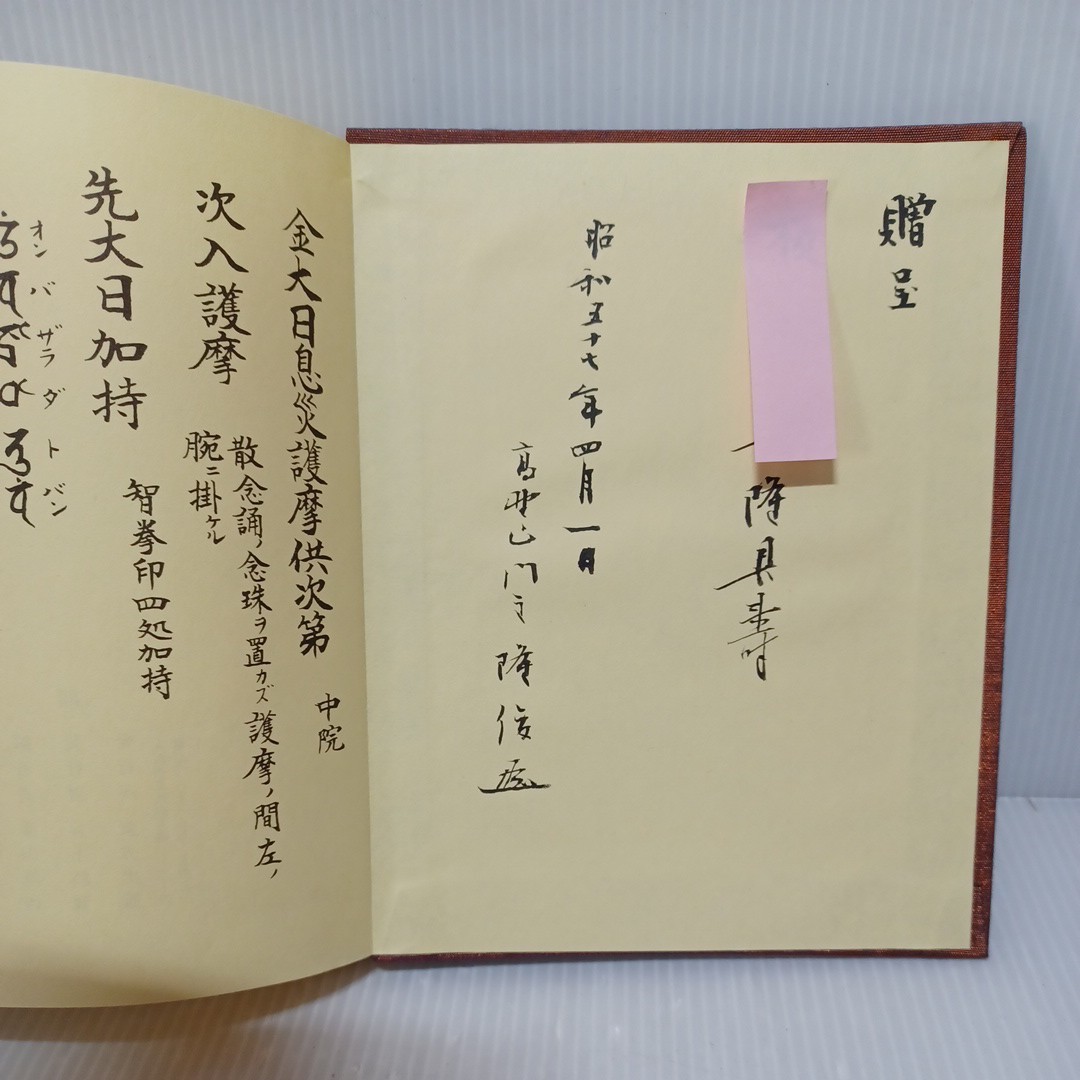 贈呈
隆具寿
昭和五十七年四月一日
高野山門主 隆俊
金大日息災護摩供次第 中院
次入護摩 散念誦ノ念珠ヲ置カズ護摩ノ間左ノ
腕ニ掛ケル
先大日加持 智拳印四処加持
オンバザラダトバン